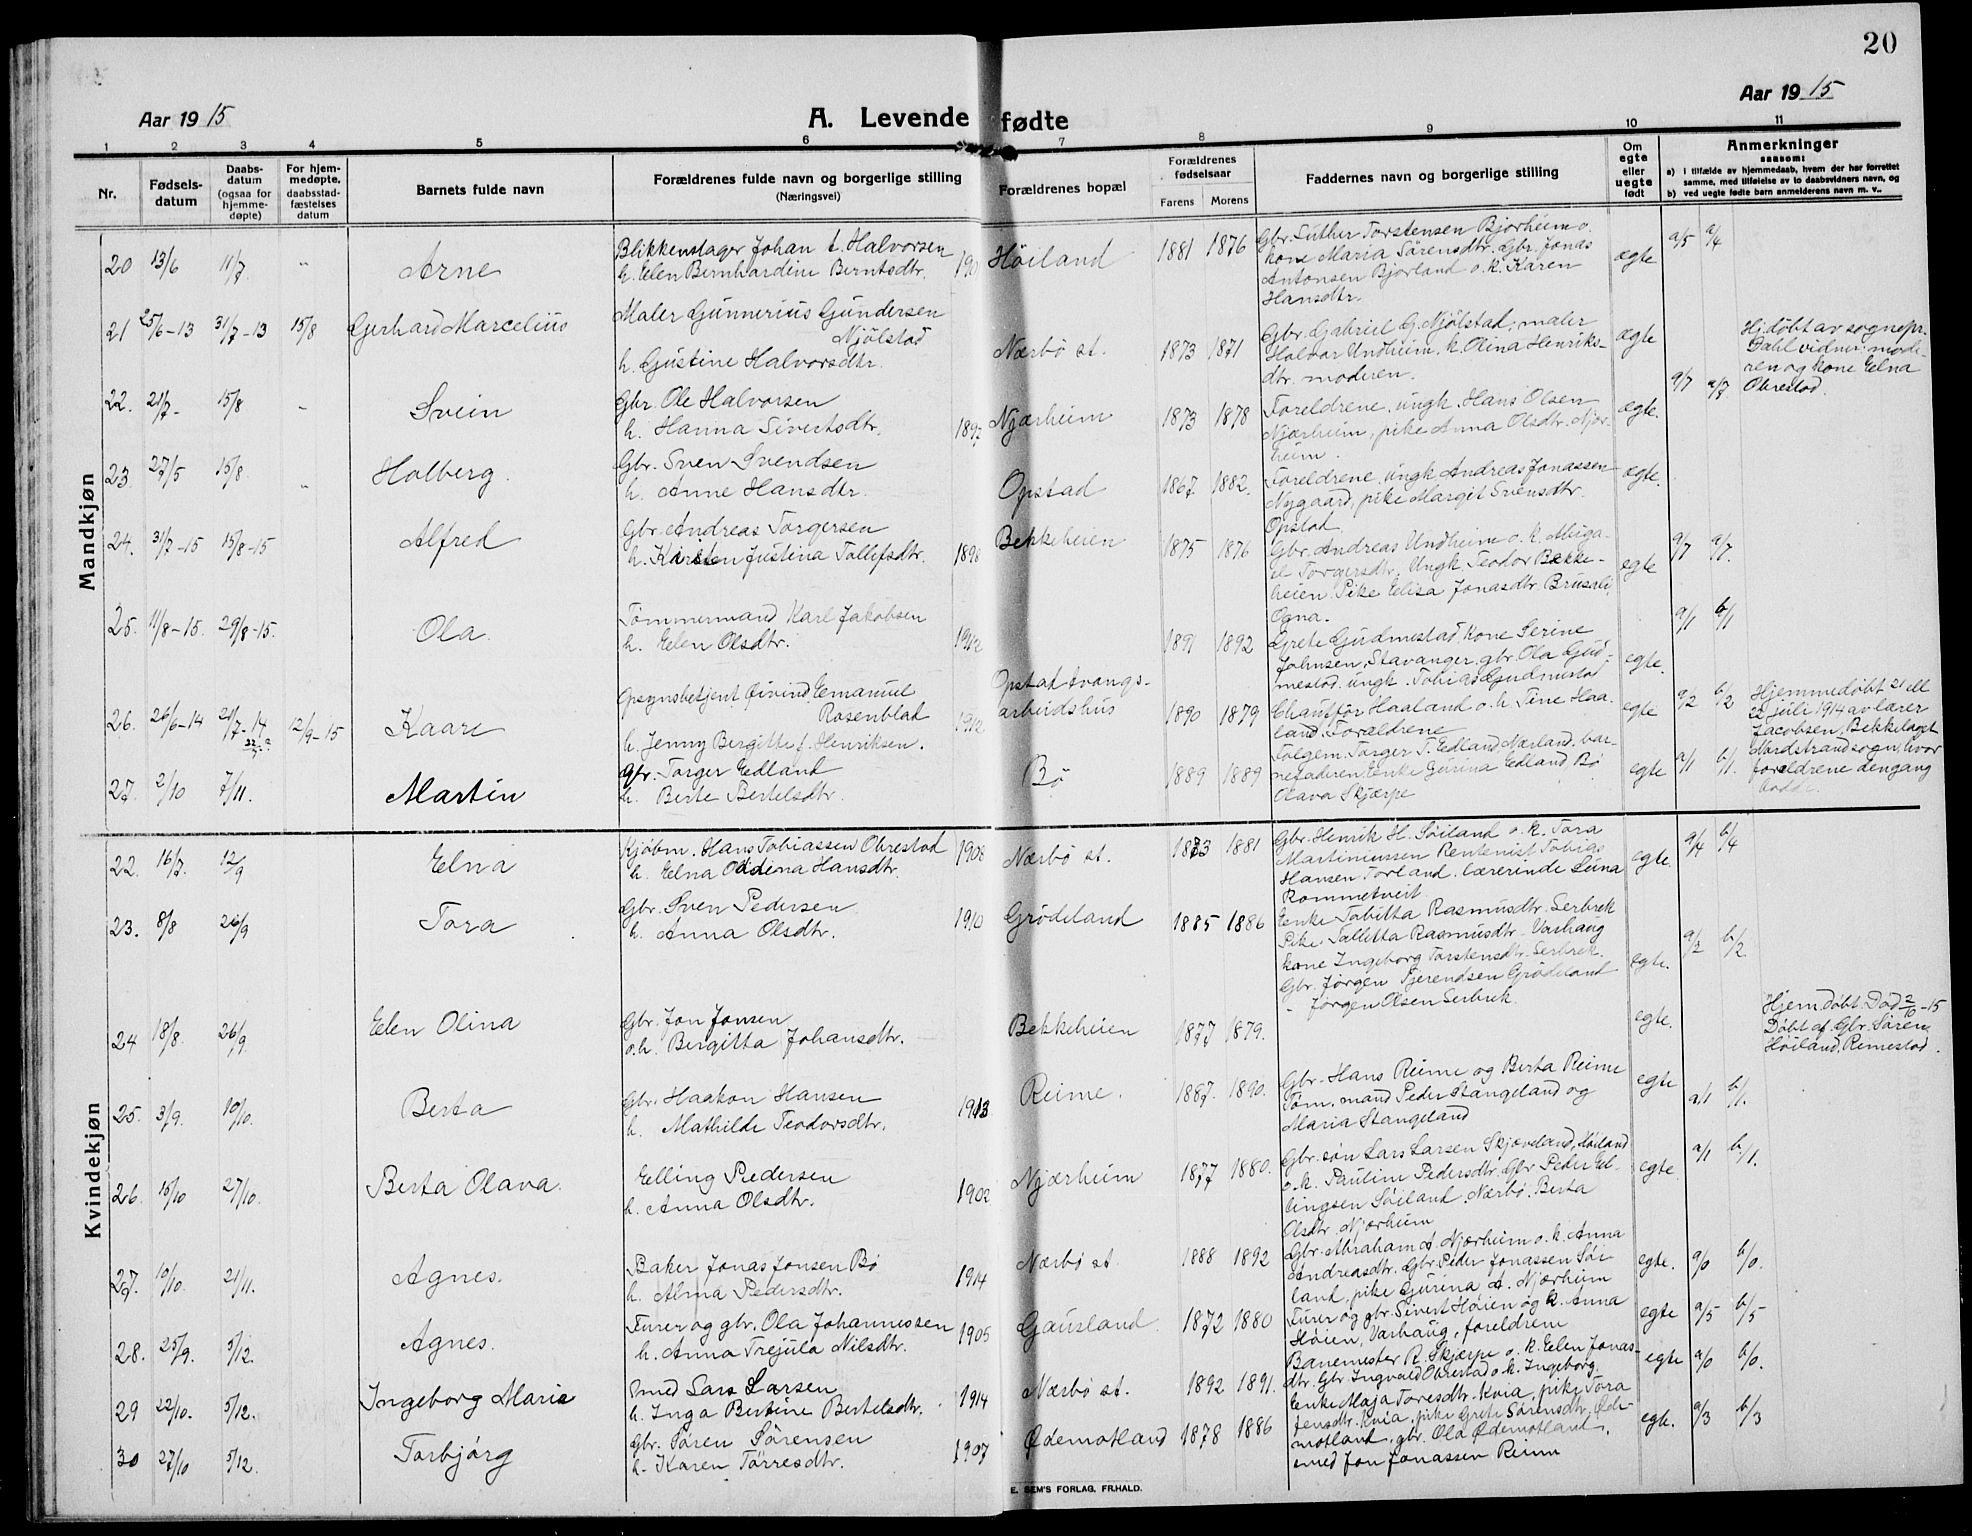 20
Aar 1915
A. Levende fødte
Aar 1915
1 2 3 4 5 6 7 8 9 10 11
Nr.
Fødsels-
datum
Daabs-
datum
(ogsaa for
hjemme-
døpte)
For hjem-
medøpte.
daabsstad-
fæstelses
datum
Barnets fulde navn
Forældrenes fulde navn og borgerlige stilling
(Næringsvei)
Forældrenes bopæl
Forældrenes
fødselsaar
Farens Morens
Faddernes navn og borgerlige stilling
Om
egte
eller
uegte
født
Anmerkninger
saasom:
a) i tilfælde av hjemmedaab, hvem der har forrettet
samme, med tilføielse av to daabsvidners navn, og
b) ved uegte fødte barn anmelderens navn m. v..
Mandkjøn
20 13/6 11/7 " Arne
Blikkenslager Johan t. Halvorsen
h. Elen Bernhardine Berntsdtr. 190
Høiland 1881 1876
Gbr. Luther Torstensen Bjorheim o.
kone Maria Sørensdtr. Gbr. Jonas
Antonsen Bjorland o. k. Karen
Hansdtr.
ægte a/5 a/4
21 25/6-13 31/7-13 15/8 Gerhard Marcelius
Maler Gunnerius Gundersen
Njølstad
h. Gustine Halvorsdtr.
Nærbø st. 1873 1871
Gbr. Gabriel G. Njølstad, maler
Halvar Undheim, k. Olina Henriks-
dtr. moderen.
ægte
Hj. døbt av sognepr.
Dahl vidner: mode-
ren og kone Elna
Obrestad.
22. 21/7- 15/8 - Svein
Gbr. Ole Halvorsen
h. Hanna Sivertsdtr. 1897
Njærheim 1873 1878
Foreldrene, ungk. Hans Olsen
Njærheim, pike Anna Olsdtr. Njær-
heim.
egte. a/7 a/7
23 27/5 15/8. " Holberg.
Gbr. Sven Svendsen
h. Anne Hansdtr.
Opstad 1867 1882.
Foreldrene, ungk Andreas Jonassen
Nygaard, pike Margit Svensdtr.
Opstad
egte.
24. 31/7-15 15/8-15 Alfred
Gbr. Andreas Torgersen
h. Karsten Justina Tollefsdtr. 1898
Bekkeheien 1875 1876
Gbr. Andreas Undheim o. k. Abiga-
el Torgersdtr. Ungk Teodor Bekke-
heien. Pike Elisa Jonasdtr. Brusali,
Ogna.
egte a/7 a/7.
25. 11/8-15. 29/8-15. Ola.
Tømmermand Karl Jakobsen
h. Elen Olsdtr. 1912
1891 1892
Grete Gudmestad, kone Serine
Johnsen, Stavanger, gbr. Ola Gud-
mestad. ungk. Tobias Gudmestad
egte. a/1 b/1
26. 26/6-14 21/7-14 12/9-15 Kaare
Opsynsbetjent Øivind Emanuel
Rosenblad 1912
h. Jenny Bergitte f. Henriksen.
Opstad tvangs-
arbeidshus 1890 1879
Chaufför Haaland o. h. Tine Haa-
land. Forældrene
egte a/2 b/2
Hjemmedøbt 21 ell
22 juli 1914 av lærer
Jacobsen, Bekkelaget
Nordstrand sogn, hvor
foreldrene dengang
bodde.
27. 2/10 7/11. Martin
Gbr. Torger Edland
h. Berte Bertelsdtr.
Bø 1889 1889
Folgem. Torger T. Edland Nærland, bar-
nefaderen Enke Gurina Edland Bø
Olava Skjærpe
egte a/1 b/1.
Kvindekjøn
22. 16/7. 12/9 Elna
Kjøbm. Hans Tobiassen Obrestad 1908
h. Elna Oddina Hansdtr.
Nærbø st. 1873 1881
Gbr. Henrik H. Søiland o. k. Tora
Martiniussen Rentenist Tobias
Hansen Torland. lærerinde Lina
Rommetveit
egte. a/4 b/4
23. 8/8 26/9 Tora
Gbr. Sven Pedersen 1910
h. Anna Olsdtr.
Grødeland 1885 1886
Enke Tabitta Rasmusdtr. Serbrek
Pike Tallitta Rasmusdtr. Varhaug
kone Ingeborg Torstensdtr. Serbrek.
Gbr. Jørgen Tjerendsen Grødeland
- Jørgen Olsen Serbrek.
egte. a/2 b/2
24 18/8. 26/9. Elen Olina
Gbr. Jon Jonsen
o.h. Bergitta Johansdtr.
Bekkeheien 1877 1879.
egte.
Hjem. døbt. Død 2/10-15
Døbt af Gbr. Søren
Høiland, Rimestad.
25. 3/9. 10/10. Berta
Gbr. Haakon Hansen
h. Mathilde Teodorsdtr. 1913
Reime. 1887. 1890.
Gbr. Hans Reime og Berta Reime
Tøm. mand Peder Stangeland og
Maria Stangeland
egte a/1 b/1.
26. 15/10 27/10. Berta Olava.
Elling Pedersen
h. Anna Olsdtr. 1902
Njærheim 1877 1880.
Gbr. søn Lars Larsen Skjæveland, Høiland
o. k. Pauline Pedersdtr. Gbr. Peder El-
lingsen Søiland. Nærbø. Berta
Olsdtr. Njærheim
egte. a/1 b/1.
27. 10/10. 21/11. Agnes.
Baker Jonas Jonsen Bø
h. Alma Pedersdtr. 1914
Nærbø st 1888 1892
Gbr. Abraham A. Njærheim o. k. Anna
Andreasdtr. Gbr. Peder Jonassen Sør
land, pike Gurina A. Njærheim
egte. a/0 b/0.
28. 25/9. 5/12. Agnes.
Furer og gbr. Ola Johannessen 1905
h. Anna Trejula Nilsdtr.
Gausland. 1872 1880
Furer og gbr. Sivert Høien og k. Anna
Høien, Varhaug, foreldrene
egte a/5 b/5
29 22/10. 5/12. Ingeborg Marie
Smed Lars Larsen 1914
h. Inga Bertine Bertelsdtr.
Nærbø st. 1892 1891.
Banemester R. Skjærpe o. k. Elen Jonas-
dtr. Gbr. Ingvald Obrestad o. k. Ingeborg.
egte a/0 b/0.
30 27/10 5/12. Torbjørg
Gbr. Søren Sørensen
h. Karen Tørresdtr. 1907
Ødemotland 1878 1886
Enke Maja Toresdtr. Kvia, pike Tora
Jensdtr. Kvia, pike Grete Sørensdtr. Øde-
motland, gbr. Ola Ødemotland,
smed Jon Jonassen Reime
egte. a/3 b/3
E. SEM'S FORLAG, FR.HALD.